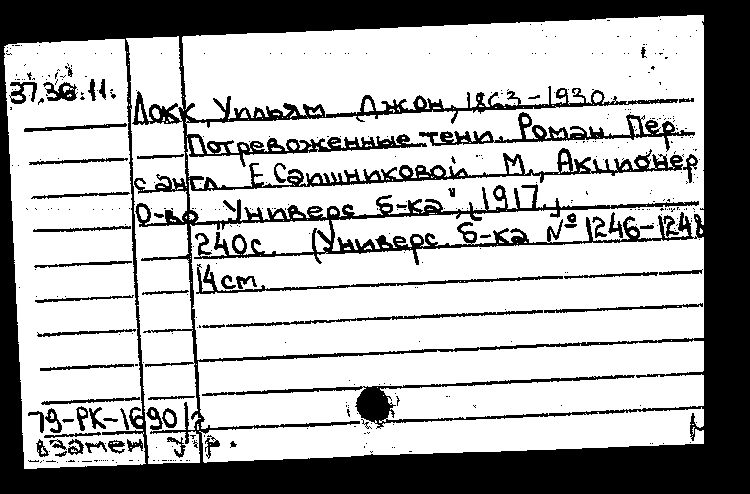 37.36.11.
Локк, Уильям Джон, 1863-1930.
Потревоженные тени. Роман. Пер.
с англ. Е. Сапшниковой. М., Акционер
О-во „Универс. б-ка", [1917].
240с. (Универс. б-ка № 1246-1248
14см.
79-РК-1690/2
взамен